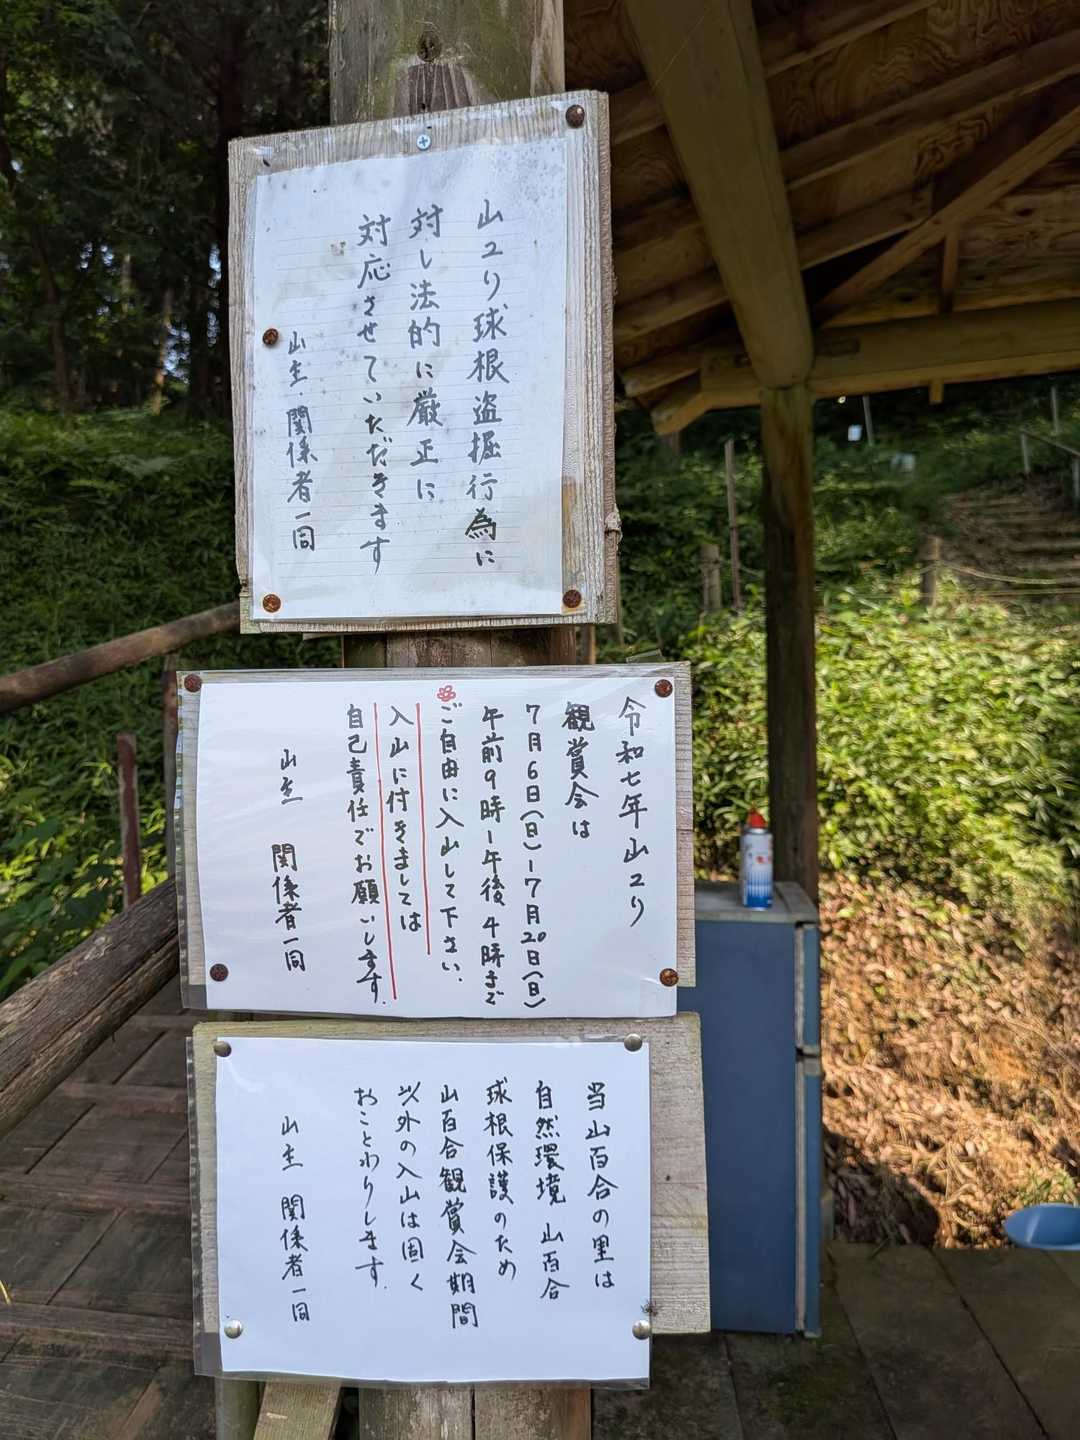 山ユリ球根盗掘行為に
対し法的に厳正に
対応させていただきます
山主・関係者一同
令和七年山ユリ
観賞会は
7月6日(日)~7月20日(日)
午前9時~午後4時まで
ご自由に入山して下さい、
入山に付きましては
自己責任でお願いします。
山主 関係者一同
当山百合の里は
自然環境 山百合
球根保護のため
山百合観賞会期間
以外の入山は固く
おことわりします。
山主 関係者一同